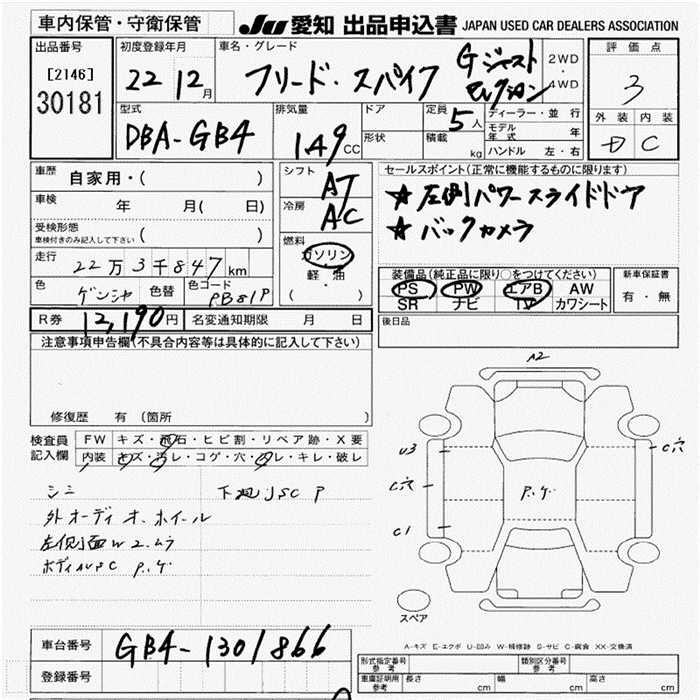 車内保管・守衛保管
JU 愛知 出品申込書 JAPAN USED CAR DEALERS ASSOCIATION
出品番号
[2146]
30181
初度登録年月
22 12月
車名・グレード
フリード・スパイク Gジャスト
セレクション
2WD
・
4WD
評価点
3
外装 内装
D C
型式
DBA-GB4
排気量
149CC
ドア
形状
定員
5人
積載 kg
ディーラー・並行
モデル年式 年
ハンドル 左・右
車歴 自家用・( )
車検 年 月( 日)
受検形態
車検付きのみ記入して下さい ( )
走行 22万3千847km
色 ゲンシャ 色替 色コード PB81P
シフト AT
冷房 AC
燃料
ガソリン
軽・油
( ・ )
セールスポイント(正常に機能するものに限ります)
★左側パワースライドドア
★バックカメラ
装備品(純正品に限り○をつけてください)
PS PW エアB AW
SR ナビ TV カワシート
新車保証書
有・無
R券 12,190円 名変通知期限 月 日
後日品
注意事項申告欄(不具合内容等は具体的に記入して下さい)
修復歴 有(箇所
検査員
記入欄
FW キズ・飛石・ヒビ割・リペア跡・X要
内装 キズ・汚レ・コゲ・穴・スレ・キレ・破レ
シミ 下廻リSC P
外オーディオ、ホイール
左側面W2、ムラ
ボディ P.ゲ
A2
U3
C穴
C1
C穴
P.ゲ
スペア
A-キズ E-エクボ U-凹み W-補修跡 S-サビ C-腐食 XX-交換済
車台番号 GB4-1301866
登録番号
形式指定番号
参考
類別区分番号
参考
車庫証明用
参考
長さ cm 幅 cm 高さ cm